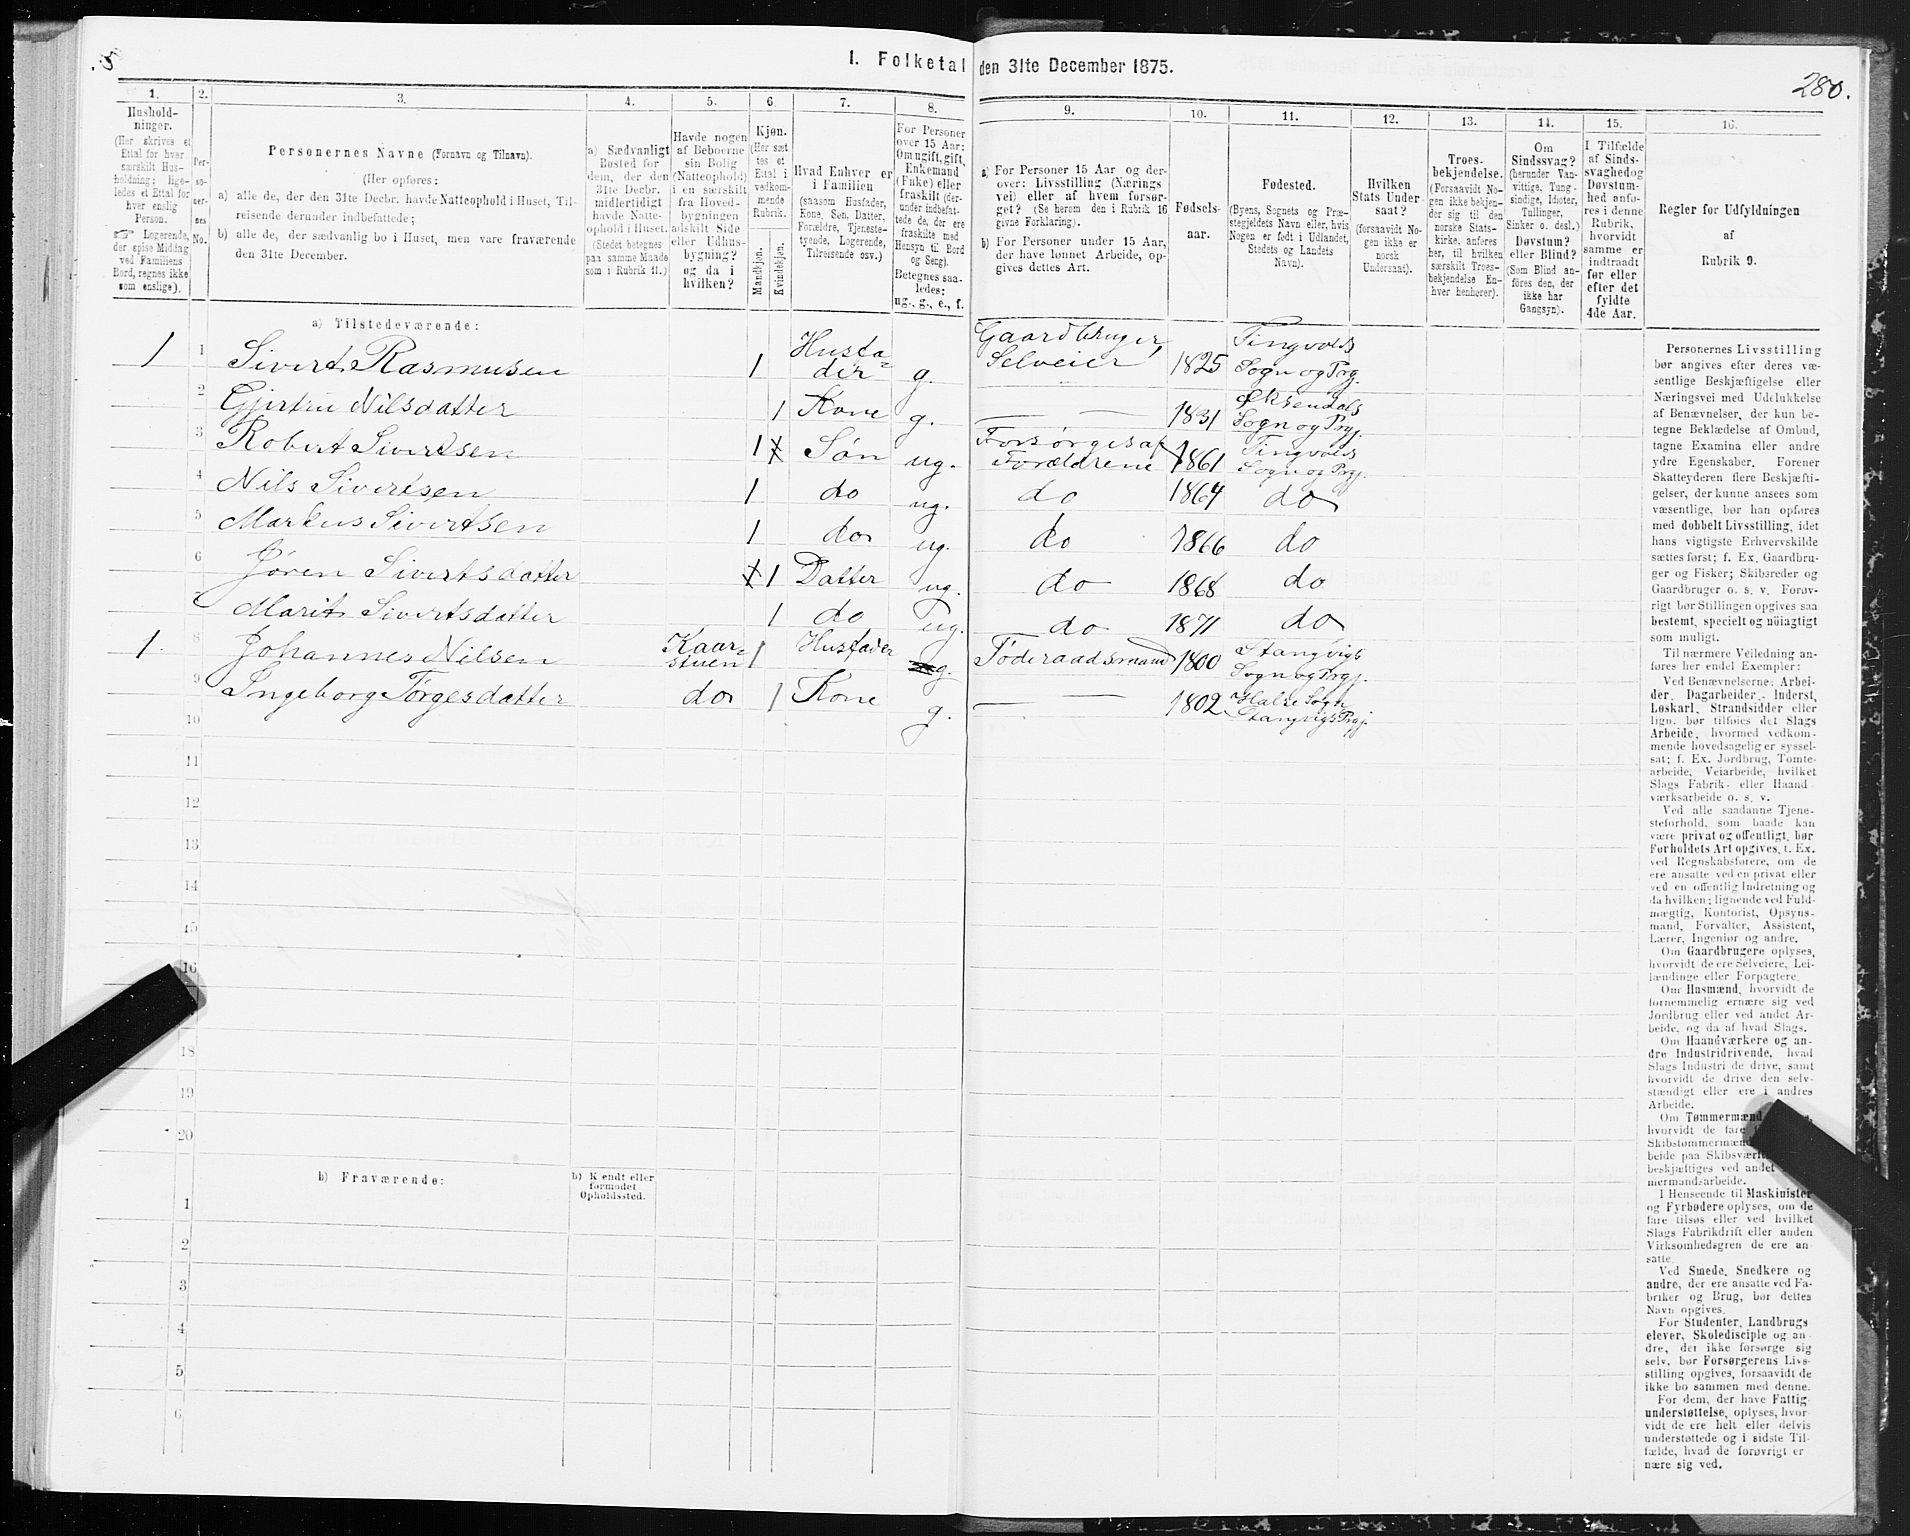 5
1. Folketal den 31te December 1875.
280.
1.
Hushold-
ninger.
(Her skrives et
Ettal for hver
særskilt Hus-
holdning; lige-
ledes et Ettal for
hver enslig
Person.
☞ Logerende,
der spise Middag
ved Familiens
Bord, regnes ikke
som enslige).
2.
Per-
so-
ner-
nes
No.
3.
Personernes Navne (Fornavn og Tilnavn).
(Her opføres:
a) alle de, der den 31te Decbr. havde Natteophold i Huset, Til-
reisende derunder indbefattede;
b) alle de, der sædvanlig bo i Huset, men vare fraværende
den 31te December.
4.
a) Sædvanligt
Bosted for
dem, der den
31te Decbr.
midlertidigt
havde Natte-
ophold i Huset.
(Stedet betegnes
paa samme Maade
som i Rubrik 11.)
5.
Havde nogen
af Beboerne
sin Bolig
(Natteophold)
i en særskilt
fra Hoved-
bygningen
adskilt Side
eller Udhus-
bygning?
og da i
hvilken?
6.
Kjøn.
(Her sæt
tes et
Ettal i
vedkom-
mende
Rubrik.
Mandkjøn.
Kvindekjøn.
7.
Hvad Enhver er
i Familien
(saasom Husfader,
Kone, Søn, Datter,
Forældre, Tjeneste-
tyende, Logerende,
Tilreisende osv.)
8.
For Personer
over 15 Aar:
Om ugift, gift,
Enkemand
(Enke) eller
fraskilt (der-
under indbefat-
tede de, der ere
fraskilte med
Hensyn til Bord
og Seng).
Betegnes saa-
ledes:
ug., g., e., f.
9.
a) For Personer 15 Aar og der-
over: Livsstilling (Nærings
vei) eller af hvem forsør-
get? (Se herom den i Rubrik 16
givne Forklaring).
b) For Personer under 15 Aar,
der have lønnet Arbeide, op-
gives dettes Art.
10.
Fødsels-
aar.
11.
Fødested.
(Byens, Sognets og Præ-
stegjeldets Navn eller, hvis
Nogen er født i Udlandet,
Stedets og Landets
Navn).
12.
Hvilken
Stats Under
saat?
(forsaavidt No-
gen ikke er
norsk
Undersaat).
13.
Troes-
bekjendelse.
(Forsaavidt No-
gen ikke bekjen-
der sig til den
norske Stats-
kirke, anføres
her, til hvilken
særskilt Troes-
bekjendelse En-
hver henhører).
14.
Om
Sindssvag?
(herunder Van-
vittige, Tung-
sindige, Idioter,
Tullinger,
Sinker o. desl.)
Døvstum?
eller Blind?
(Som Blind an-
føres den, der
ikke har
Gangsyn).
15.
I Tilfælde
af Sinds-
svaghed og
Døvstum-
hed anfø-
res i denne
Rubrik,
hvorvidt
samme er
indtraadt
før eller
efter det
fyldte
4de Aar.
16.
Regler for Udfyldningen
af
Rubrik 9.
a) Tilstedeværende:
1 1 Sivert Rasmusen 1 Husfa-
der g. Gaardbruger, Selveier 1825 Tingvolds
Sogn og Prgj.
2 Gjertru Nilsdatter 1 Kone g. — — 1831 Øksendals
Sogn og Prgj.
3 Robert Sivertsen 1 Søn ug. Forsørges af
Forældrene 1861 Tingvolds
Sogn og Prgj.
4 Nils Sivertsen 1 do ug. do 1864 do
5 Markus Sivertsen 1 do ug. do 1866 do
6 Jøren Sivertsdatter 1 Datter ug. do 1868 do
7 Marit Sivertsdatter 1 do ug. do 1871 do
1. 8 Johannes Nilsen Kaar-
stuen 1 Husfader g. Föderaadsmand 1800 Stangvigs
Sogn og Prgj.
9 Ingeborg Törgesdatter do 1 Kone g. — — 1802 Halse Sogn
Stangvigs Prgj.
10
11
12
13
14
15
16
18
19
20
b) Fraværende:
b) Kendt eller
formodet
Opholdssted.
1
2
3
4
5
6
Personernes Livsstilling
bør angives efter deres væ-
sentlige Beskjæftigelse eller
Næringsvei med Udelukkelse
af Benævnelser, der kun be-
tegne Beklædelse af Ombud,
tagne Examina eller andre
ydre Egenskaber. Forener
Skatteyderen flere Beskjæfti-
gelser, der kunne ansees som
væsentlige, bør han opføres
med dobbelt Livsstilling, idet
hans vigtigste Erhvervskilde
sættes først; f. Ex. Gaardbru-
ger og Fisker; Skibsreder og
Gaardbruger o. s. v. Forøv-
rigt bør Stillingen opgives saa
bestemt, specielt og nøiagtigt
som muligt.
Til nærmere Veiledning an-
føres her endel Exempler:
Ved Benævnelserne: Arbei-
der, Dagarbeider, Inderst,
Løskarl, Strandsidder eller
lign. bør tilføies det Slags
Arbeide, hvormed vedkom-
mende hovedsagelig er syssel-
sat; f. Ex. Jordbrug, Tomte-
arbeide, Veiarbeide, hvilket
Slags Fabrik- eller Haand-
værksarbeide o. s. v.
Ved alle saadanne Tjene-
steforhold, som baade kan
være privat og offentligt, bør
Forholdets Art opgives, f. Ex.
ved Regnskabsførere, om de
ere ansatte ved en privat eller
ved en offentlig Indretning og
da hvilken; lignende ved Fuld-
mægtig, Kontorist, Opsyns-
mand, Forvalter, Assistent,
Lærer, Ingeniør og andre.
Om Gaardbrugere oplyses,
hvorvidt de ere Selveiere, Lei-
lændinge eller Forpagtere.
Om Husmænd, hvorvidt de
fornemmelig ernære sig ved
Jordbrug eller ved andet Ar-
beide, og da af hvad Slags.
Om Haandværkere og an-
dre Industridrivende, hvad
Slags Industri de drive, samt
hvorvidt de drive den selv-
stændigt eller ere i andres
Arbeide.
Om Tømmermænd
hvorvidt de fare
Skibstømmermænd
beide paa Skibsværft
beskjæftiges ved andet
mermandsarbeide.
I Henseende til Maskinister
og Fyrbødere oplyses, om de
fare tilsøs eller ved hvilket
Slags Fabrikdrift eller anden
Virksomhedsgren de ere an-
satte.
Ved Smede, Snedkere og
andre, der ere ansatte ved Fa-
briker og Brug, bør dettes
Navn opgives.
For Studenter, Landbrugs
elever, Skoledisciple og an-
dre, der ikke forsørge sig
selv, bør Forsørgerens Livs-
stilling opgives, forsaavidt de
ikke bo sammen med denne.
For dem, der have Fattig-
understøttelse, oplyses, hvor-
vidt de ere helt eller delvis
understøttede og i sidste Til-
fælde, hvad de forøvrigt er
nære sig ved.